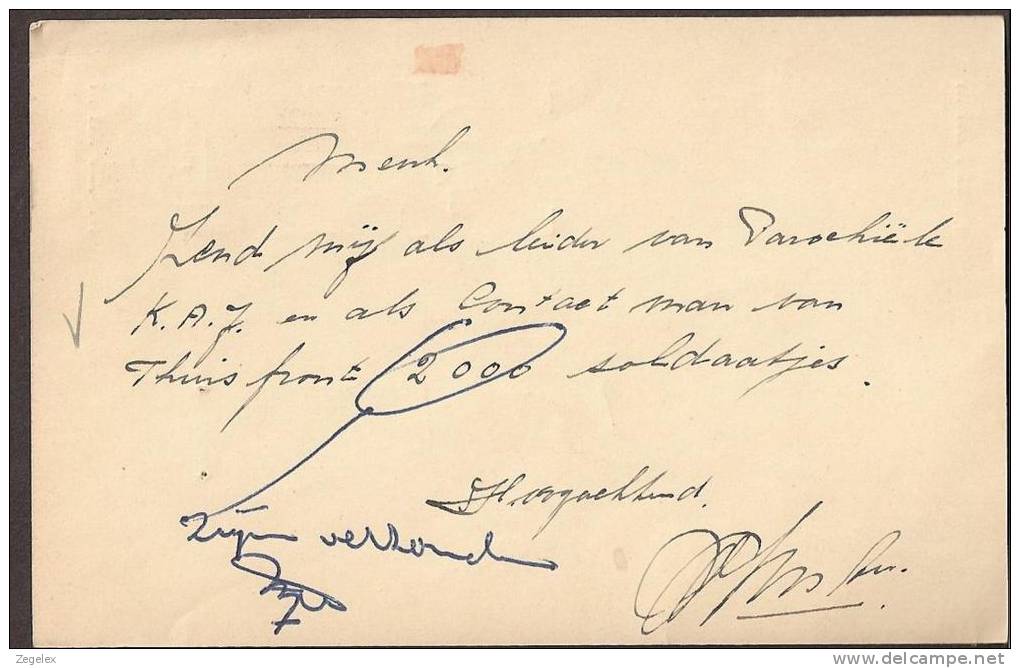 Menh.
Zend mij als leider van Parochiële
K.A.J. en als Contact man van
Thuis front 2000 soldaatjes.
Hoogachtend.
Zijn verzonden
Zegelex
delcampe.net